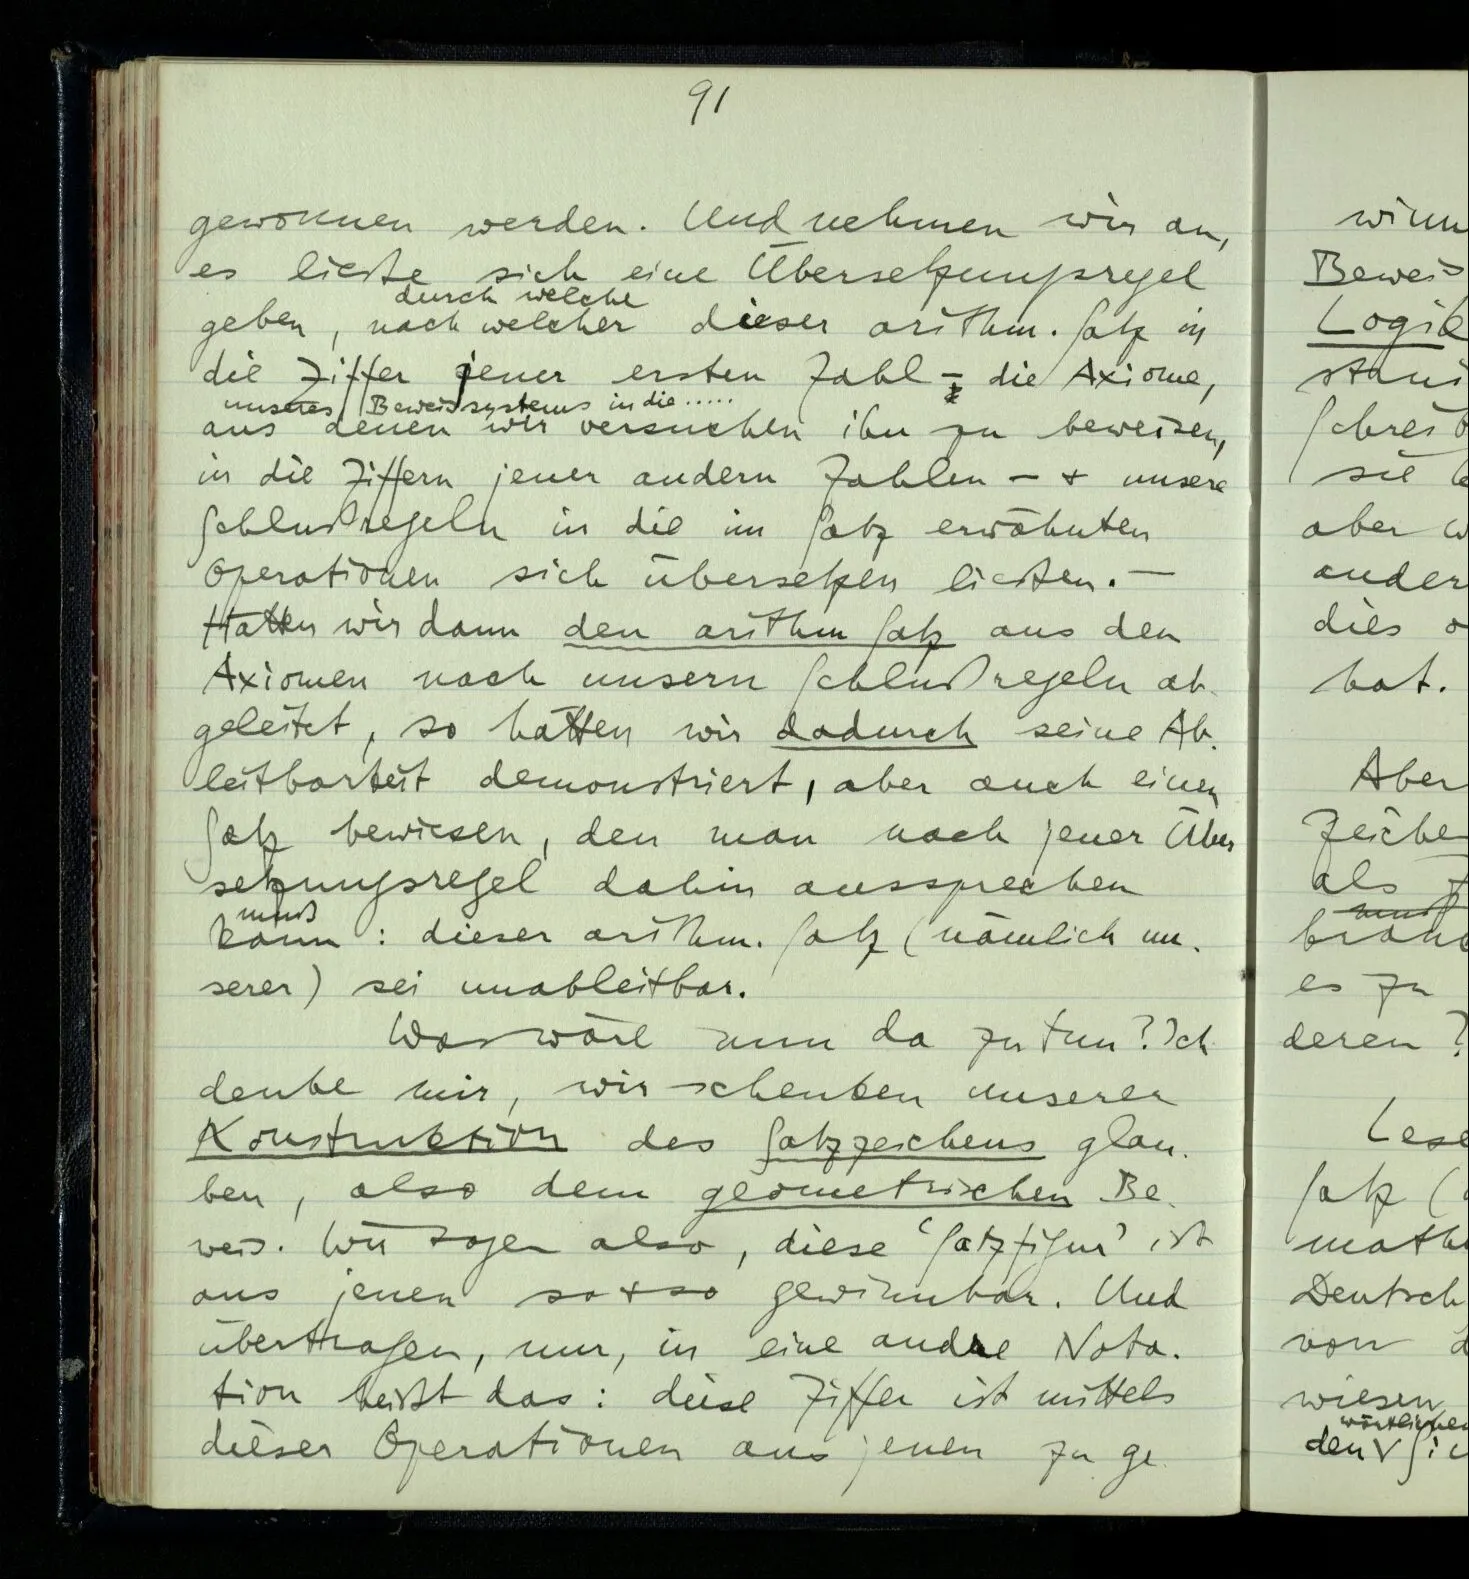 91
gewonnen werden. Und nehmen wir an,
es ließe sich eine Übersetzungsregel
durch welche
geben, nach welcher dieser arithm. Satz in
die Ziffer jener ersten Zahl – die Axiome,
unseres Beweissystems in die .....
aus denen wir versuchen ihn zu beweisen,
in die Ziffern jener andern Zahlen – + unsere
Schlußregeln in die im Satz erwähnten
Operationen sich übersetzen ließen. –
Hätten wir dann den arithm Satz aus den
Axiomen nach unsern Schlußregeln ab-
geleitet, so hätten wir dadurch seine Ab-
leitbarkeit demonstriert, aber auch einen
Satz bewiesen, den man nach jener Über
setzungsregel dahin aussprechen
muß
kann: dieser arithm. Satz (nämlich un-
serer) sei unableitbar.
Was wäre nun da zu tun? Ich
denke mir, wir schenken unserer
Konstruktion des Satzzeichens glau-
ben, also dem geometrischen Be-
weis. Wir sagen also, diese 'Satzfigur' ist
aus jenen so+so gewinnbar. Und
übertragen, nur, in eine andre Nota-
tion heißt das: diese Ziffer ist mittels
dieser Operationen aus jenen zu ge
winn
Beweis
Logik
aber
ander
dies
hat.
Aber
Zeiche
als
muß
es zu
deren?
Lese
Satz (
math
Deutsch
von
wiesen
wörtlichen
den